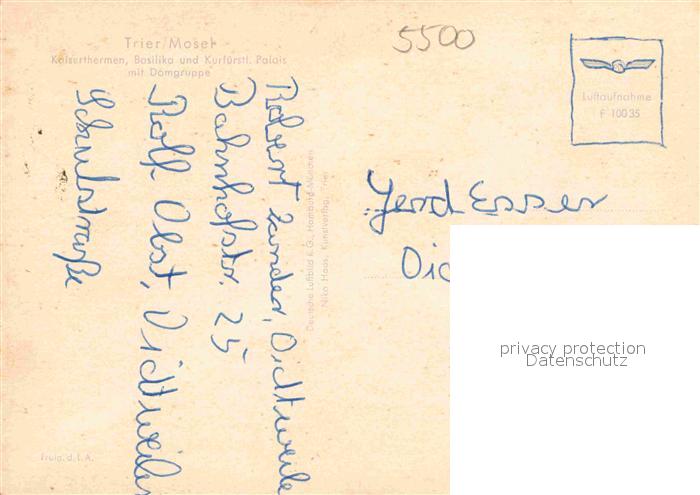 Trier/Mosel
Kaiserthermen, Basilika und Kurfürstl. Palais
mit Domgruppe
5500
Luftaufnahme
F 10035
Robert Zander, Didtweile
Bahnhofstr. 25
Rolf Obst, Didtweiler
Schulstraße
Deutsche Luftbild K. G., Hamburg-München
Niko Haas, Kunstverlag, Trier
Gerd Esser
Did
privacy protection
Datenschutz
Freig. d. L. A.